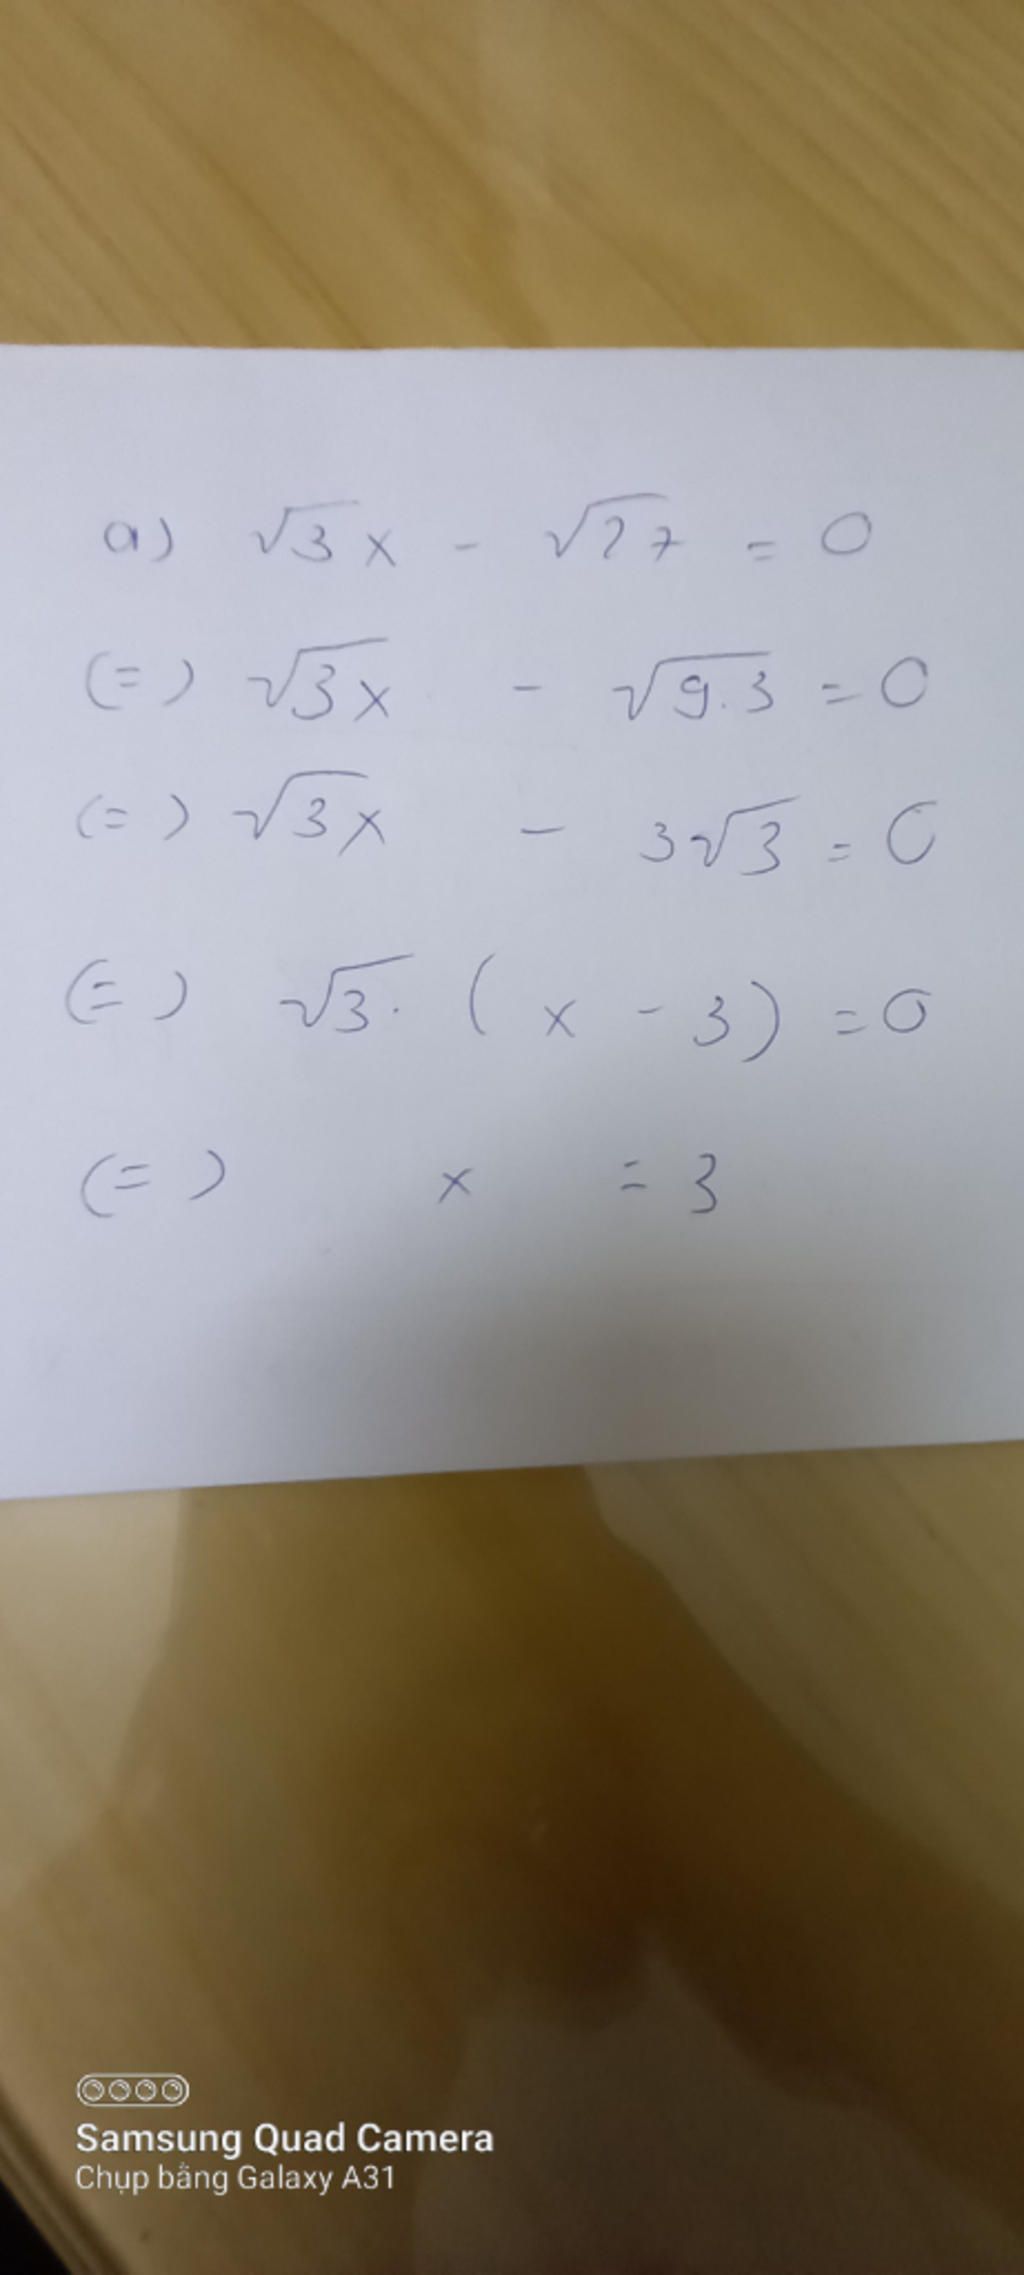 a) √3 x - √27 = 0
(=) √3 x - √9.3 = 0
(=) √3 x - 3√3 = 0
(=) √3. (x - 3) = 0
(=) x = 3
Samsung Quad Camera
Chụp bằng Galaxy A31